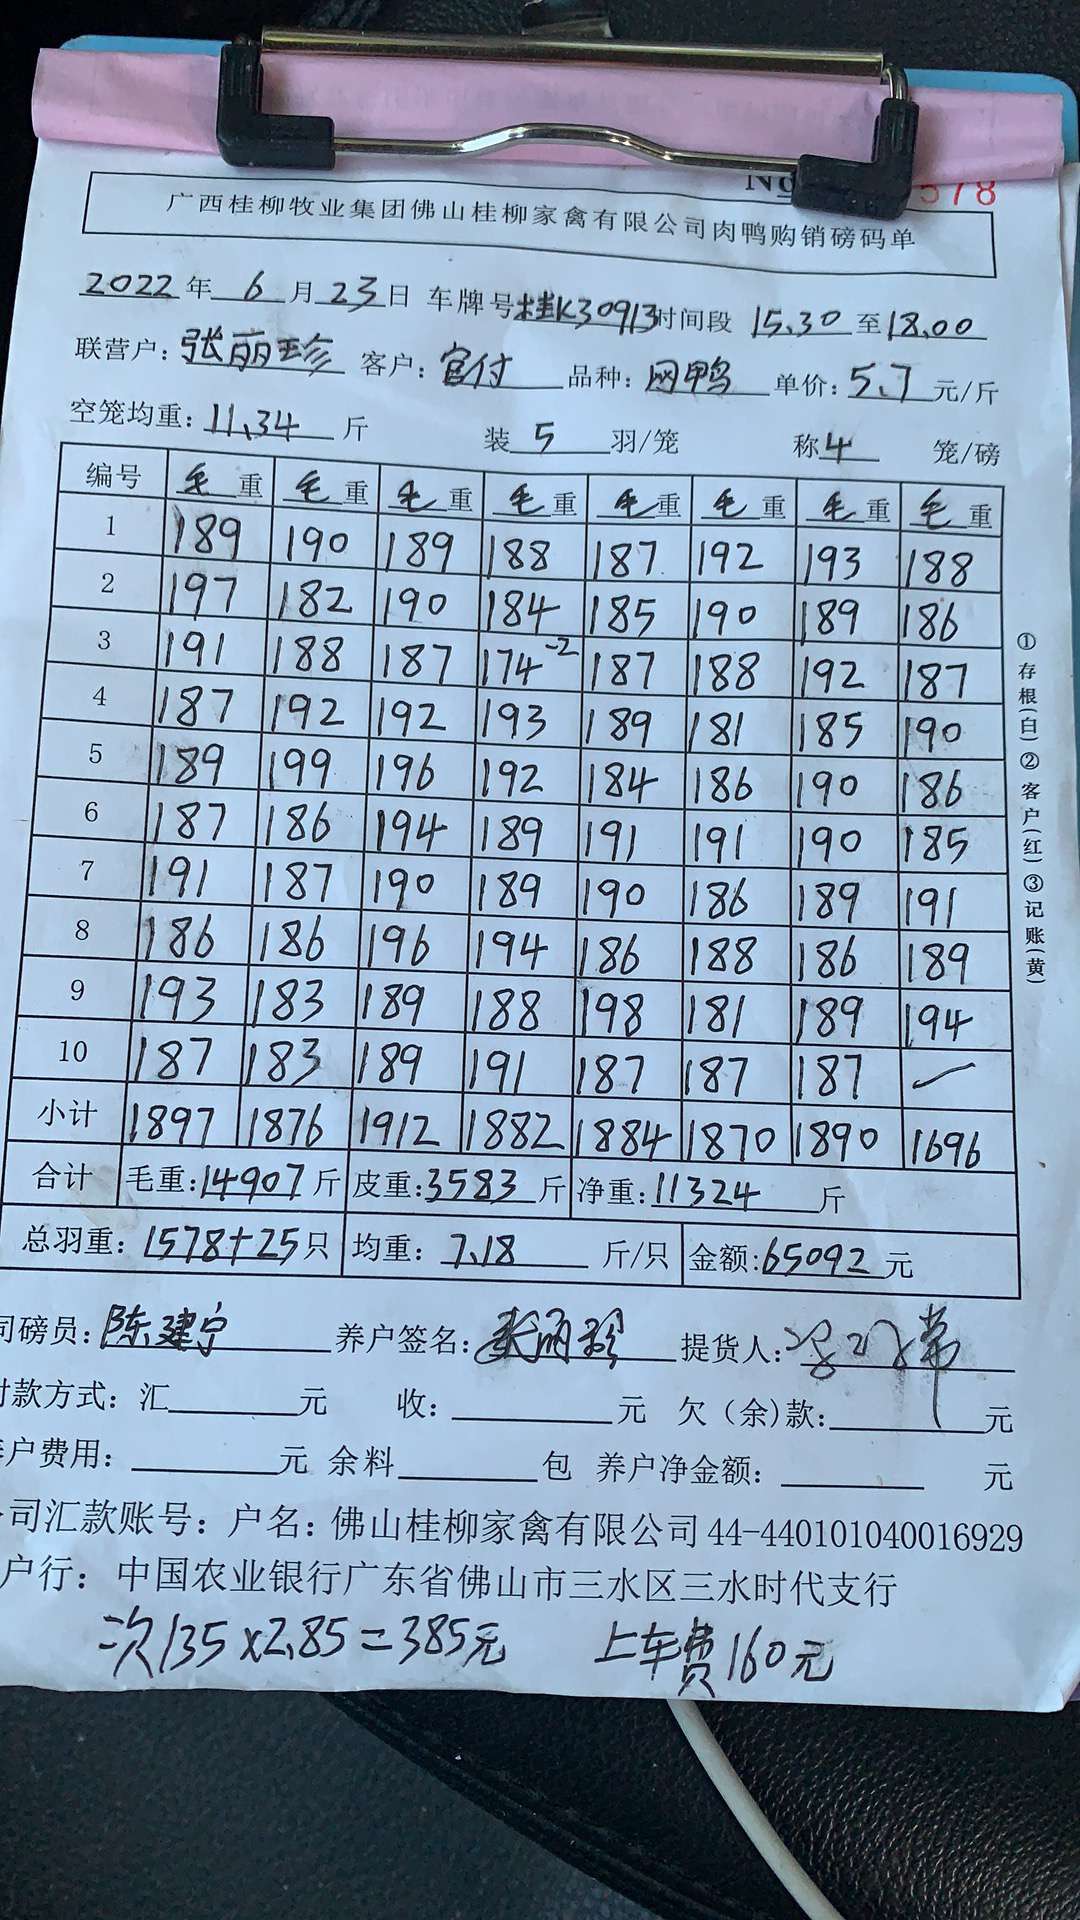 No 578
广西桂柳牧业集团佛山桂柳家禽有限公司肉鸭购销磅码单
2022年 6 月 23 日 车牌号桂K30913时间段 15.30 至18.00
联营户：张丽珍 客户：官付 品种：网鸭 单价：5.7 元/斤
空笼均重：11.34 斤 装 5 羽/笼 称 4 笼/磅
编号 毛重 毛重 毛重 毛重 毛重 毛重 毛重 毛重
1 189 190 189 188 187 192 193 188
2 197 182 190 184 185 190 189 186
3 191 188 187 174-2 187 188 192 187
4 187 192 192 193 189 181 185 190
5 189 199 196 192 184 186 190 186
6 187 186 194 189 191 191 190 185
7 191 187 190 189 190 186 189 191
8 186 186 196 194 186 188 186 189
9 193 183 189 188 198 181 189 194
10 187 183 189 191 187 187 187 —
小计 1897 1876 1912 1882 1884 1870 1890 1696
合计 毛重：14907 斤 皮重：3583 斤 净重：11324 斤
总羽重：1578+25只 均重：7.18 斤/只 金额：65092 元
司磅员：陈建宁 养户签名：张丽珍 提货人：
付款方式：汇 元 收： 元 欠（余）款： 元
养户费用： 元 余料 包 养户净金额： 元
公司汇款账号：户名：佛山桂柳家禽有限公司 44-440101040016929
户行：中国农业银行广东省佛山市三水区三水时代支行
次135×2.85=385元 上车费160元
①存根（白）②客户（红）③记账（黄）